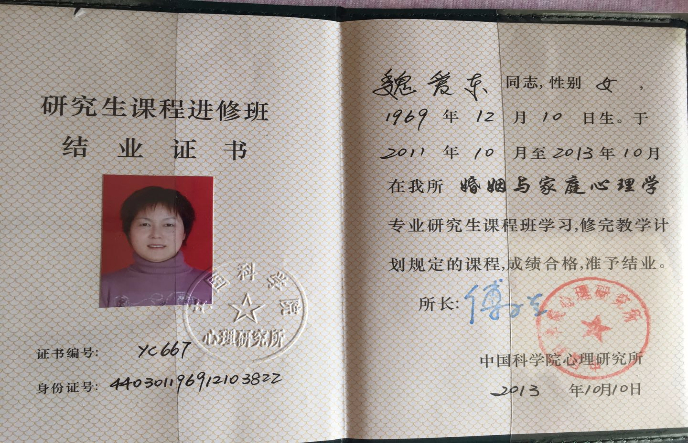 研究生课程进修班
结业证书
科学院
心理研究所
证书编号: YC667
身份证号: 440301196912103822
魏爱东 同志, 性别 女,
1969 年 12 月 10 日生。于
2011 年 10 月至 2013 年 10 月
在我所 婚姻与家庭心理学
专业研究生课程班学习, 修完教学计
划规定的课程, 成绩合格, 准予结业。
所长:
心理研究所
中国科学院心理研究所
2013 年 10 月 10 日